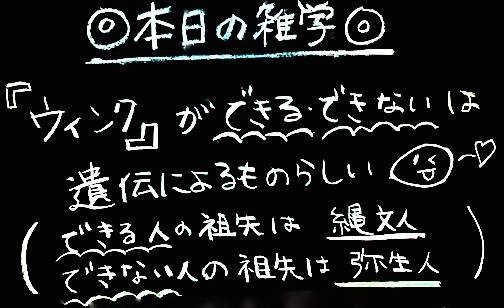 ◎本日の雑学◎
『ウィンク』ができる・できないは
遺伝によるものらしい
(できる人の祖先は 縄文人
できない人の祖先は 弥生人)